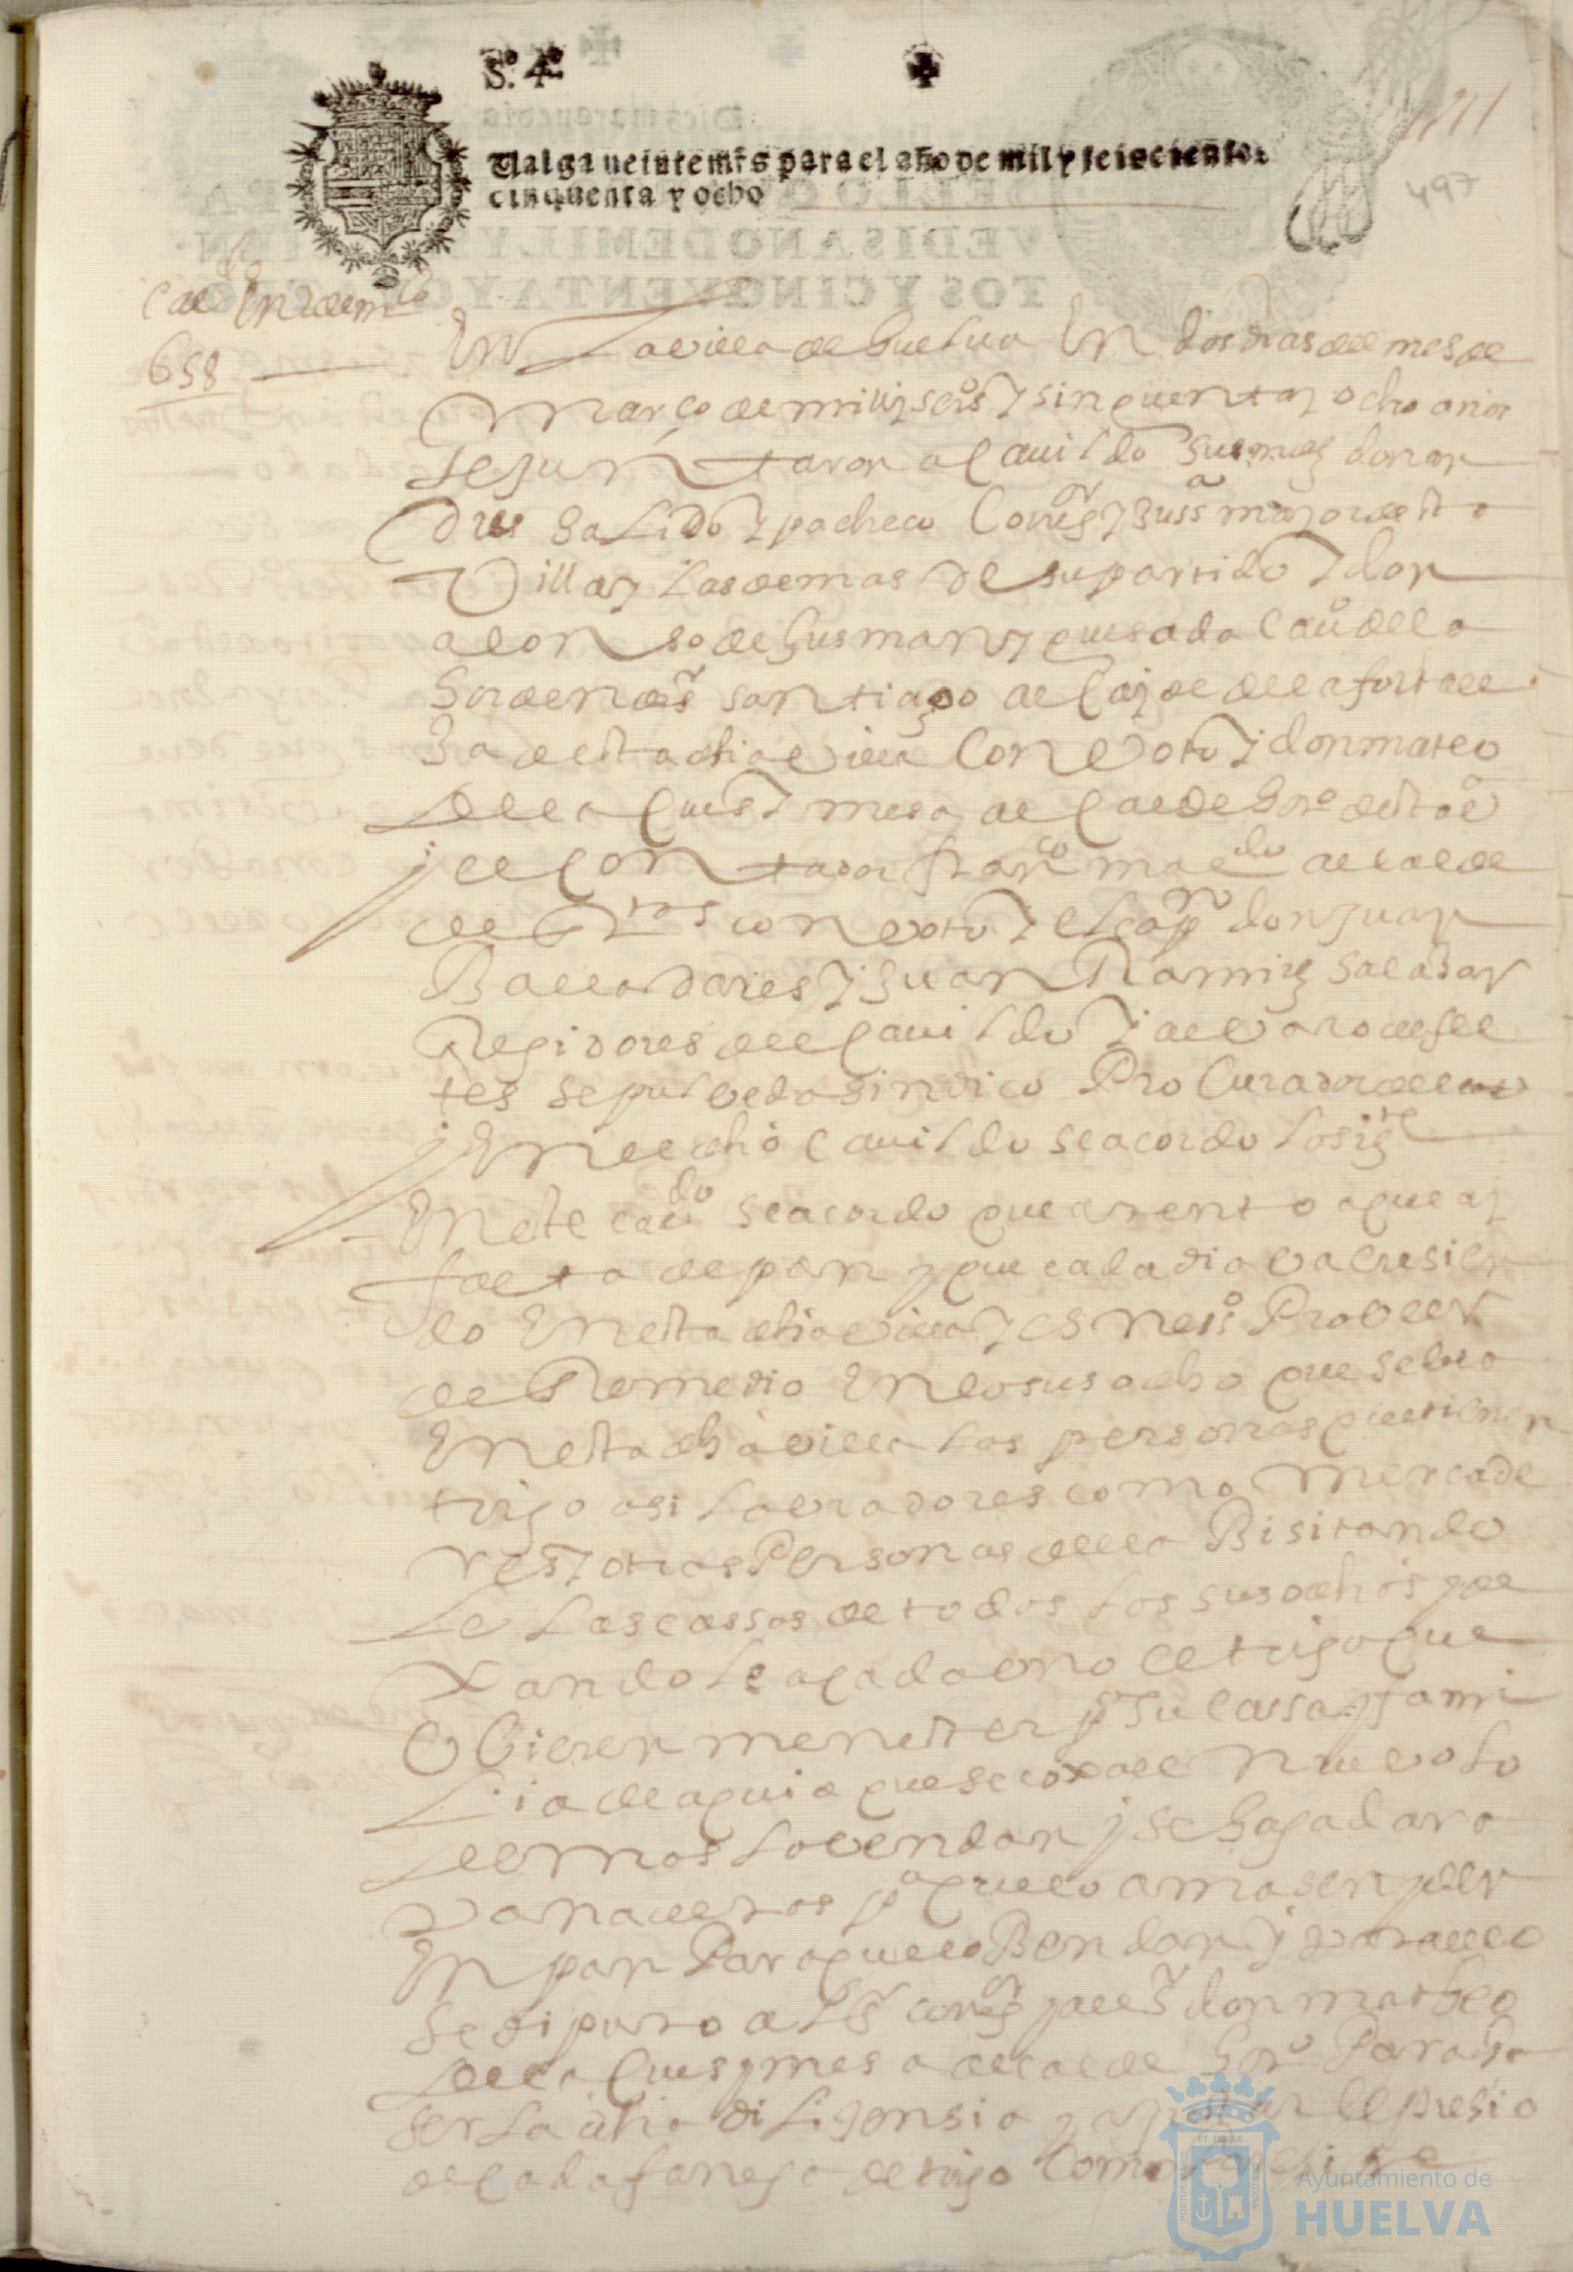 S.º 4.º
Valga veinte mrs para el año de mil y seiscientos
cinquenta y ocho
497
Cavdo En 2 de mço
658
En La villa de huelva En dos dias del mes de
março de mill y seisos y sinquenta y ocho años
se juntaron a Cavildo su md don an
dres salido y pacheco Corregor y Justa mayor desta
Villa y Las demas de su partido y don
alonso de Gusman y quesada Cavo de la
horden de sr santiago alcayde de la fortale
za desta dha villa Con Voto y don mateo
de la Cues y mesa alcalde hordo desta va
y el Contador franco maldo alcalde
de con voto y el capn don juan
Balladares y juan Ramirez salazar
Regidores del Cavildo y alvaro de fle
tes sepulveda sindico Procurador del
y En el dho Cavildo se acordo Lo sigte
En este cavdo se acordo que atento a que ay
falta de pan y que cada dia va cresien
do En esta dha villa y es neso Proveer
de Remedio En lo susodho que se bea
En esta dha villa Las personas que tienen
trigo asi Labradores como mercade
res y otras Personas della Bisitando
le Las cassas de todos Los susodhos y de
xandole a cada uno el trigo que
Obieren menester pa su cassa y fami
Lia de aqui a que se coxa el nuevo Lo
demas Lo vendan y se haga dar a
Panaderos pa que lo amasen y den
En pan Para que lo Bendan y para ello
se diputo al sr corregor y al sr don matheo
de la Cues y mesa alcalde hordo Para ha
ser La dha diligensia y el presio
de cada fanega de trigo Como
Ayuntamiento de
HUELVA